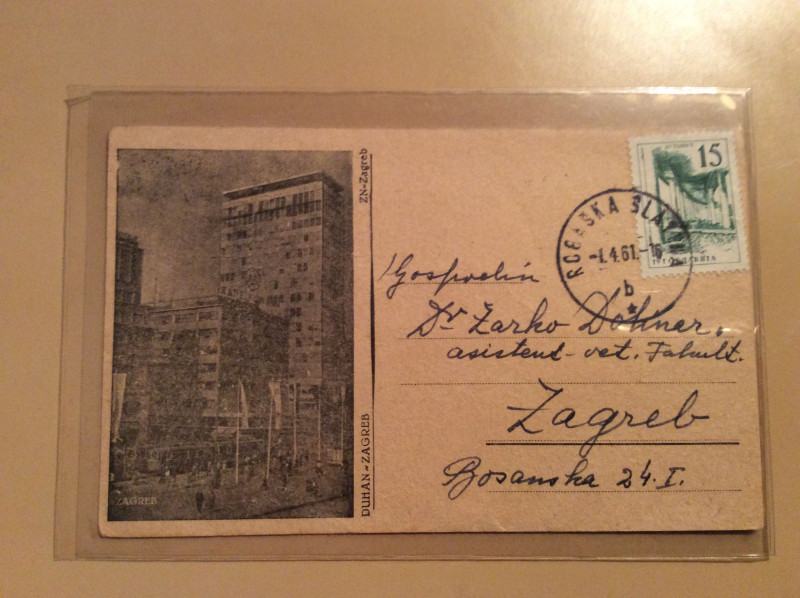 ZAGREB
DUHAN-ZAGREB
ZN-Zagreb
15
SLATINA
-1.4.61.-16
b
Gospodin
Dr Žarko Dohnar,
asistent-vet. Fakult.
Zagreb
Bosanska 24.I.